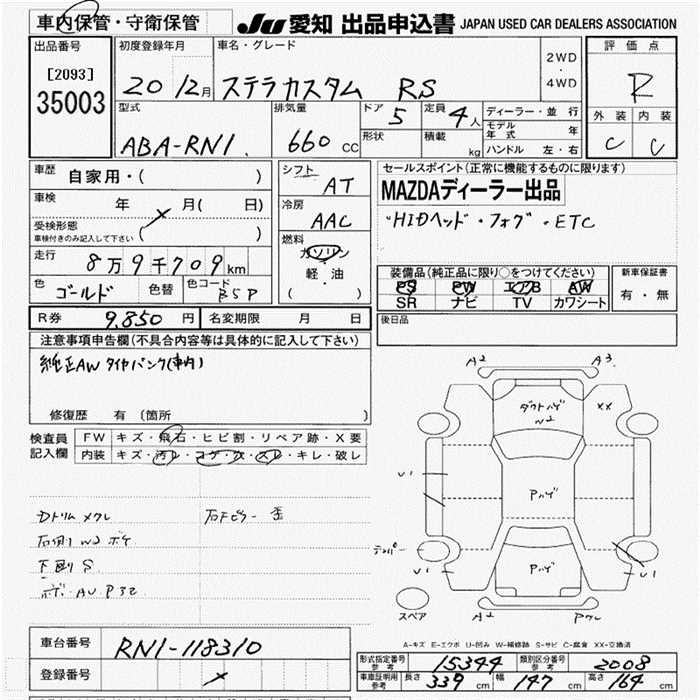 車内保管・守衛保管
JU 愛知 出品申込書 JAPAN USED CAR DEALERS ASSOCIATION
出品番号 [2093] 35003
初度登録年月 20 12月
車名・グレード ステラカスタム RS
2WD・4WD
評価点 R
外装 C 内装 C
型式 ABA-RN1.
排気量 660 CC
ドア 5
定員 4人
形状
積載 kg
ディーラー・並行
モデル年式 年
ハンドル 左・右
車歴 自家用・( )
車検 年 月( 日)
受検形態
車検付きのみ記入して下さい ( )
走行 8万9千709km
色 ゴールド 色替 色コード
シフト AT
冷房 AAC
燃料 ガソリン
軽・油
( )
セールスポイント(正常に機能するものに限ります)
MAZDAディーラー出品
HIDヘッド・フォグ・ETC
装備品(純正品に限り○をつけてください)
PS PW エアB AW
SR ナビ TV カワシート
新車保証書
有・無
R券 9,850円 名変期限 月 日
後日品
注意事項申告欄(不具合内容等は具体的に記入して下さい)
純正AW タイヤパンク(車内)
修復歴 有(箇所 )
検査員記入欄
FW キズ・飛石・ヒビ割・リペア跡・X要
内装 キズ・汚レ・コゲ・穴・スレ・キレ・破レ
Dトリム メクレ
右Fピラー 歪
下廻り S
A2 A3
W2
XX
U1
Pハゲ
U1
Pハゲ
U1
スペア
A2
A-キズ E-エクボ U-凹み W-補修跡 S-サビ C-腐食 XX-交換済
車台番号 RN1-118310
登録番号
形式指定番号 参考 15344
類別区分番号 参考 2008
車庫証明用 参考 長さ 339 cm 幅 147 cm 高さ 164 cm